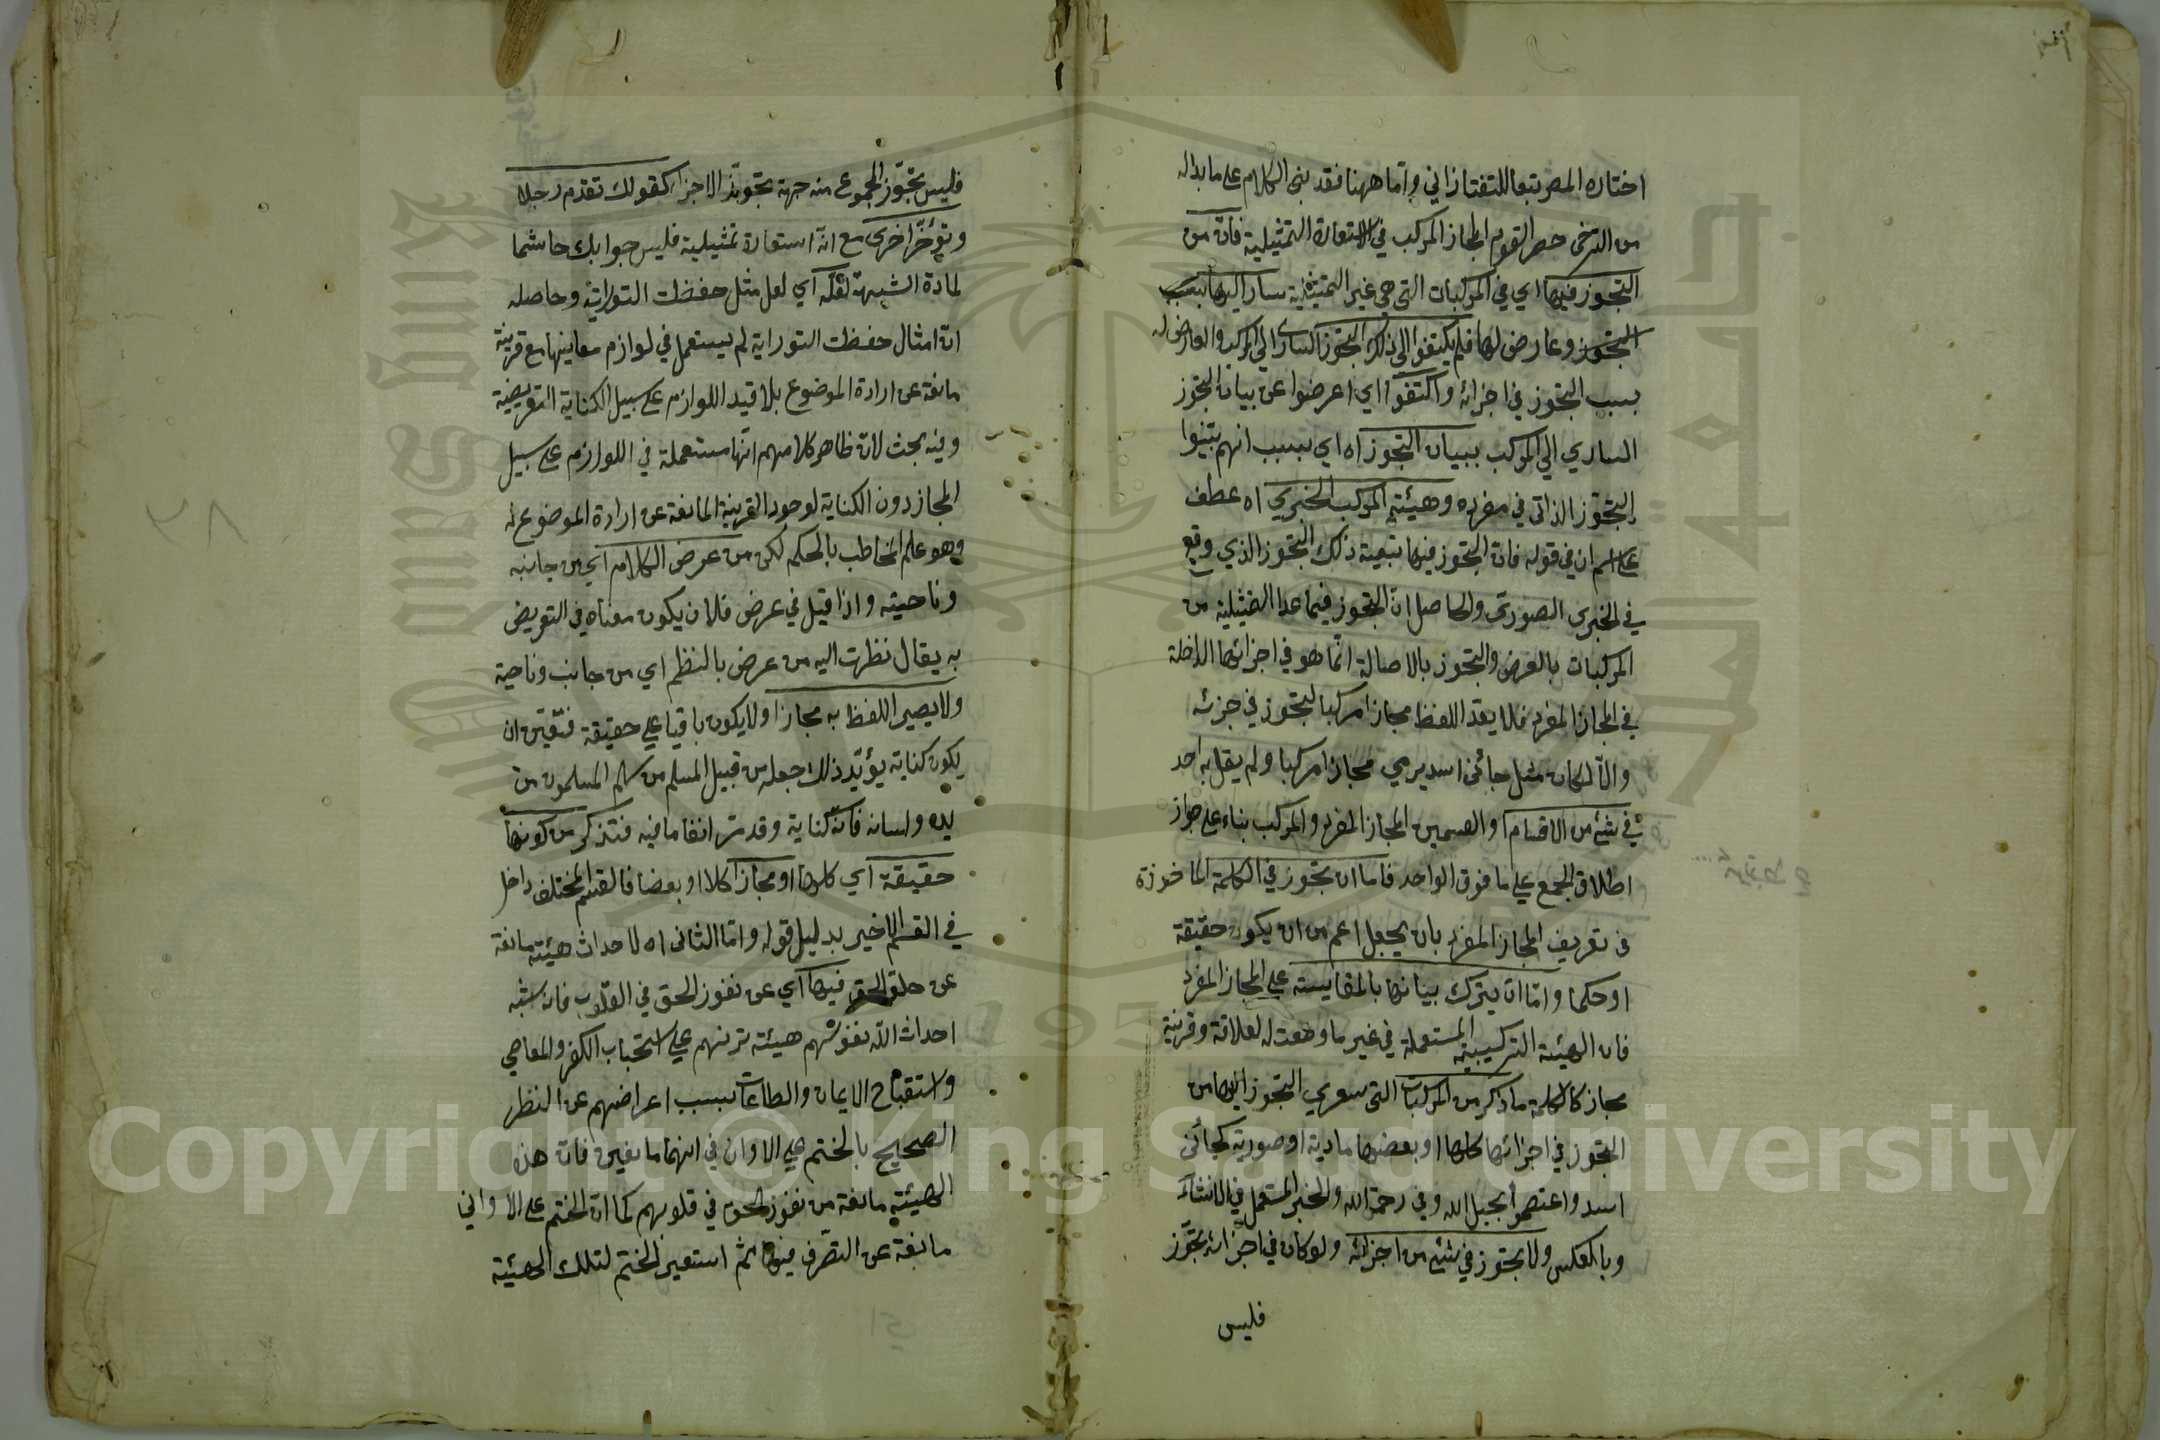 اختاره المصر تبعا للتفتازاني واما ههنا فقد بنى الكلام على ما بداله
من الترخى حصر القوم المجاز المركب في الاستعارة التمثيلية فان من
التجوز فيها اي في المركبات التى هى غير التمثيلية سار اليها بسبب
التجوز وعارض لها فلم يكتفوا الى ذلك التجوز السارى الى المركب والعارض له
بسبب التجوز في اجزائه واكتفوا اي اعرضوا عن بيان التجوز
الساري الى المركب ببيان التجوز اه اي بسبب انهم بينوا
التجوز الذاتى في مفرده وهيئته المركب الخبري اه عطف
على اسم ان في قوله فان التجوز فيها بتبعية ذلك التجوز الذي وقع
في الخبرى الصورتى والحاصل ان التجوز فيما عدا التمثيلية من
المركبات بالعرض والتجوز بالاصالة انما هو في اجزائها الداخلة
في المجاز المفرد فلا يعد اللفظ مجازا مركبا لتجوز في جزئه
والا لكان مثل جائنى اسد يرمي مجازا مركبا ولم يقل به احد
في شئ من الاقسام او القسمين المجاز المفرد والمركب بناء على جواز
اطلاق الجمع على ما فوق الواحد فاما ان تجوز في الكلمة الماخوذة
في تعريف المجاز المفرد بان يجعل اعم من ان يكون حقيقة
او حكما واما ان يترك بيانها بالمقايسة على المجاز المفرد
فان الهيئة التركيبية المستعملة في غير ما وضعت له لعلاقة وقرينة
مجاز كالكلمة ما ذكر من المركبات التى سري التجوز اليها من
التجوز في اجزائها كلها او بعضها مادية او صورية كجائنى
اسد واعتصموا بحبل الله وفي رحمة الله والخبر المستعمل في الانشاء
وبالعكس ولا تجوز في شئ من اجزائه ولو كان في اجزائه تجوز
فليس
فليس تجوز المجموع من جهة تجوز الاجزاء كقولك تقدم رجلا
وتؤخر اخرى مع انه استعارة تمثيلية فليس جوابك حاسما
لمادة الشبهة لعله اي لعل مثل حفظت التوراية وحاصله
ان امثال حفظت التوراية لم يستعمل في لوازم معانيها مع قرينة
مانعة عن ارادة الموضوع بلا قيد اللوازم على سبيل الكناية التعريضية
وفيه بحث لان ظاهر كلامهم انها مستعملة في اللوازم على سبيل
المجاز دون الكناية لوجود القرينة المانعة عن ارادة الموضوع له
وهو علم المخاطب بالحكم لكن من عرض الكلام اي من جانبه
وناحيته واذا قيل في عرض فلان يكون معناه في التعريض
به يقال نظرت اليه من عرض بالنظم اي من جانب وناحية
ولا يصير اللفظ به مجازا ولا يكون باقيا على حقيقة فتعين ان
يكون كناية يؤيد ذلك جعله من قبيل المسلم من سلم المسلمون من
يده ولسانه فانه كناية وقد مر انفا ما فيه فتذكر من كونها
حقيقة اي كلها او مجازا كلا او بعضا فالقسم المختلف داخل
في القسم الاخير بدليل قوله واما الثانى اه لاحداث هيئة مانعة
عن حلق الحق فيها اي عن نفوز الحق في القلوب فانه شبه
احداث الله نفوسهم هيئة تمرنهم على استحباب الكفر والمعاصي
واستقباح الايمان والطاعات بسبب اعراضهم عن النظر
الصحيح بالختم على الاوان في انهما مانعين فان هذه
الهيئة مانعة من نفوز الحق في قلوبهم كما ان الختم على الاواني
مانعة عن التصرف فيها ثم استعير الختم لتلك الهيئة
Copyright © King Saud University